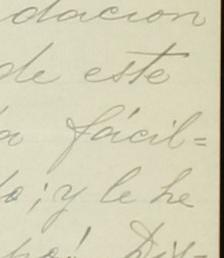 dacion
de este
a fácil=
do; y le he
Dis-